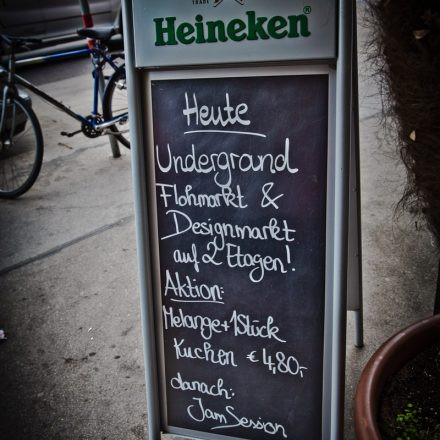 TRADE MARK
Heineken®
Heute
Underground
Flohmarkt &
Designmarkt
auf 2 Etagen!
Aktion:
Melange+1Stück
Kuchen € 4,80,-
danach:
JamSession